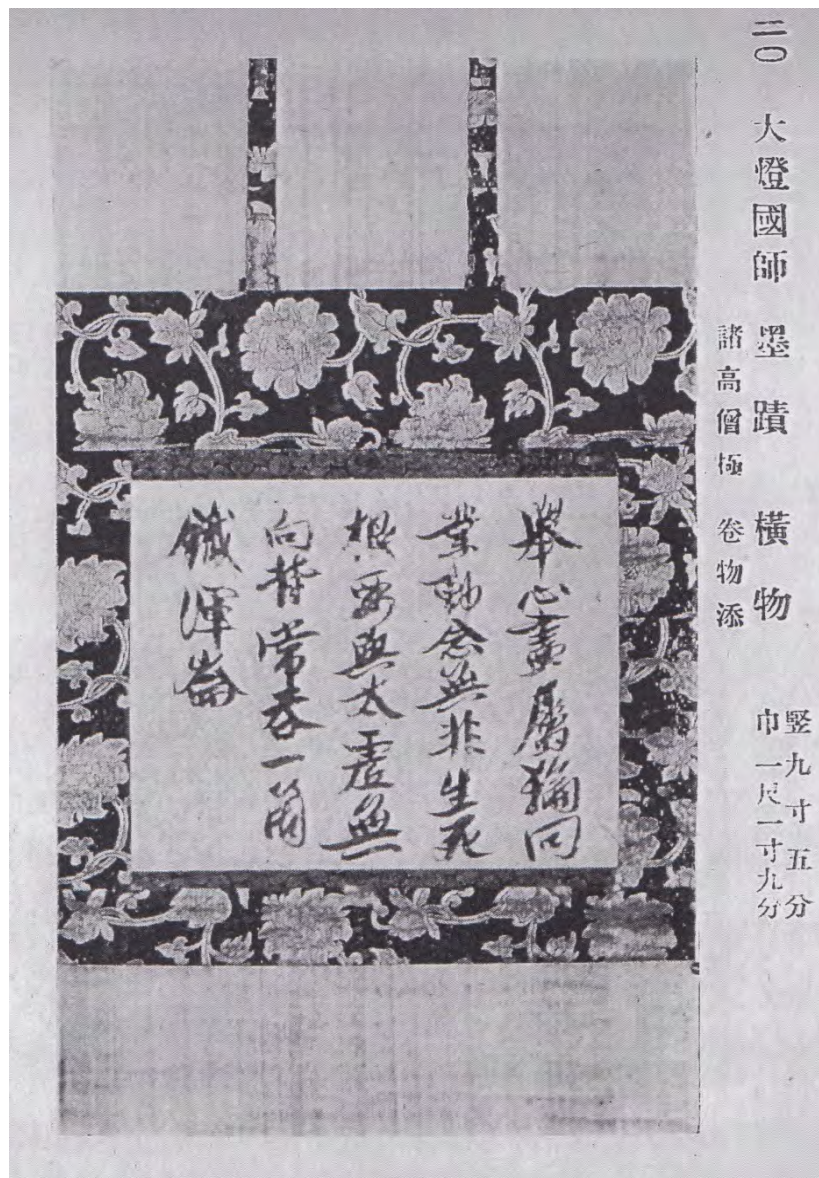 二〇 大燈國師 墨蹟 橫物
諸高僧極 卷物添
竪九寸五分
巾一尺一寸九分
擧心盡屬輪回
業動念無非生死
根要與太虛無
向背常吞一箇
鐵渾崙